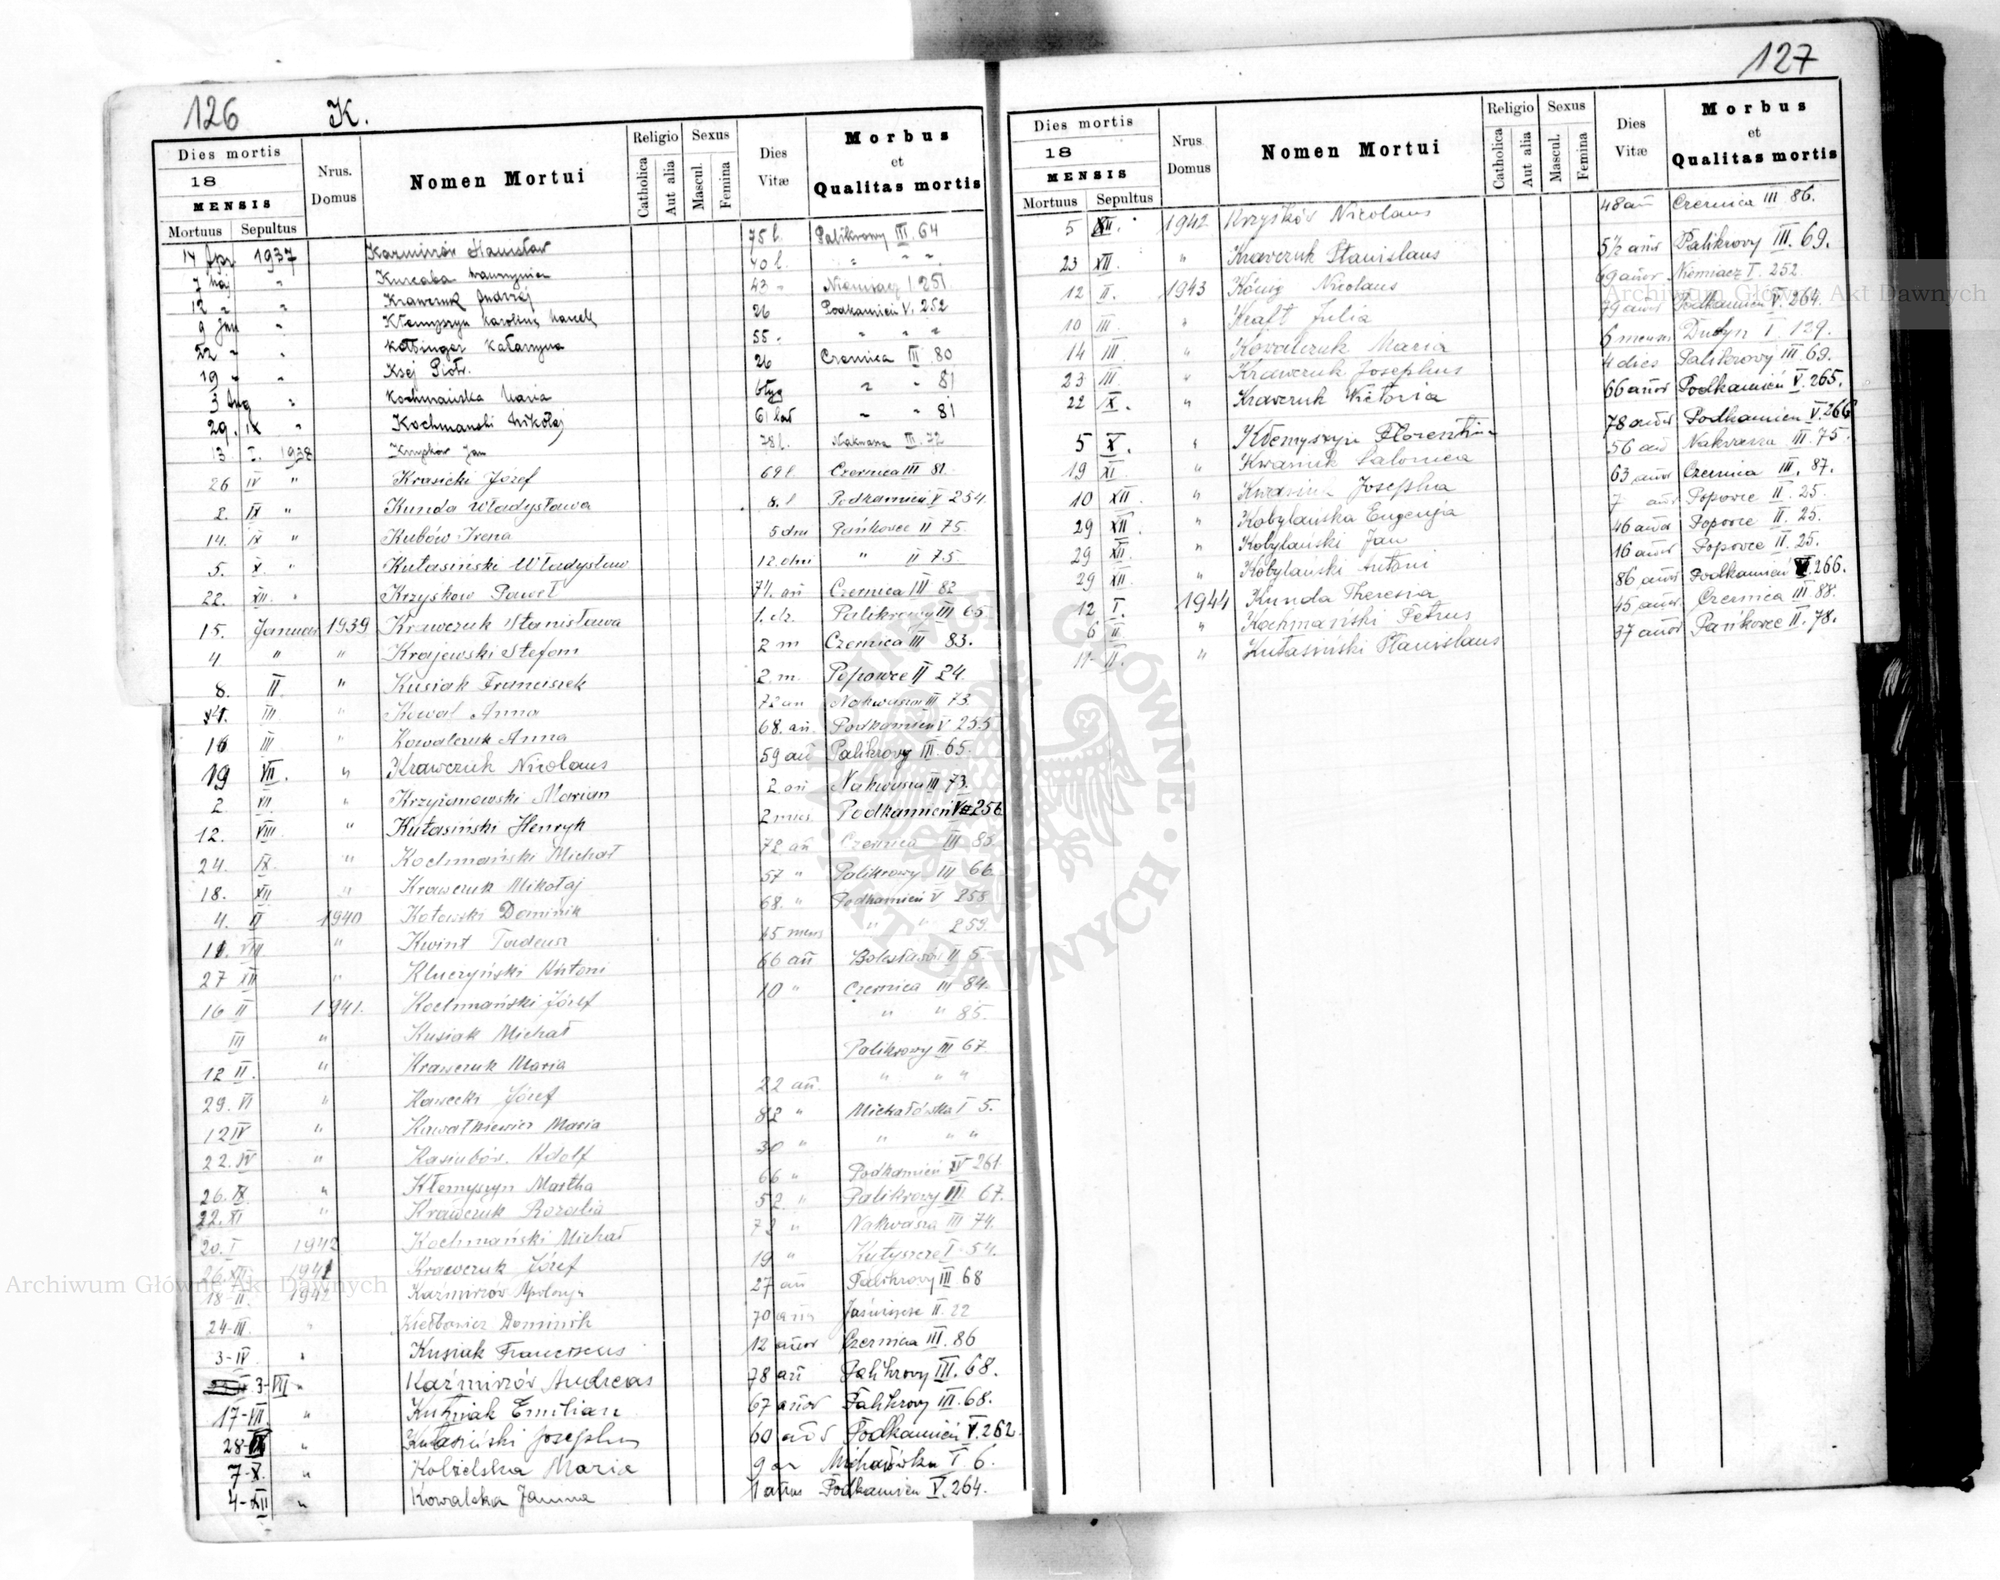 126 K.
Dies mortis Nrus. Domus Nomen Mortui Religio Sexus Dies Vitæ Morbus et Qualitas mortis
18
MENSIS
Mortuus Sepultus Catholica Aut alia Mascul. Femina
14 Apr 1937 Kazmirów Stanisław 75 l. Palikrowy III. 64
7 Maj " Kurcaba 40 l. " " "
12 " " Krawczuk Andrzej 43 " Niemiacz I 251
9 Jun " Kłemyszyn Karolina 26 Podkamień V. 252
22 " " Katarzyna 55 . " " "
19 " " Ksej Piotr. 26 Czernica III 80
3 Aug " Kochmańska Maria 6 tyg " " 81
29. IX " Kochmański Mikołaj 61 lat " " 81
13 I. 1938 Krzyśków Jan 78 l. Nakwasza III. 72
26 IV " Krasicki Józef 69 l. Czernica III 81.
2. IX " Kunda Władysława 8. l Podkamień V 254.
14. IX " Kubów Irena 5 dni Pańkowce II 75.
5. X. " Kutasiński Władysław 12 dni " II 75.
22. XII. " Krzyśkow Paweł 74. an Czernica III 82
15. Januar 1939 Krawczuk Stanisława 1. dz. Palikrowy III 65
4 " " Krajewski Stefan 2 m Czernica III 83.
8. II. " Kusiak Franciszek 2. m. Popowce II 24.
III. " Kowal Anna 72 an Nakwasza III 73.
16 III " Kowalczuk Anna 68. an. Podkamień V 255
19 VII. " Krawczuk Nicolaus 59 an Palikrowy III. 65.
2. VII " Krzyżanowski Marian 2. an Nakwasza III 73.
12. VIII. " Kutasiński Henryk 2 mies. Podkamień V 256
24. IX " Kochmański Michał 72 an Czernica III 83
18. XII " Krawczuk Mikołaj 57 " Palikrowy III 66
4. II 1940 Kotowski Dominik 68. " Podkamień V 258
11. VIII " Kwint Tadeusz 15 mens " " 259.
27 XII " Kluczyński Antoni 66 an Bolesławów II 5.
16 II 1941. Kochmański Józef 10 " Czernica III 84.
III " Kusiak Michał " " 85.
12 II. " Krawczuk Maria Palikrowy III 67.
29. VI " Kawecki Józef 22 an. " " "
12 IV " Kowalkiewicz Maria 82 " Michałówka I 5.
22. IV " Kasiubów. Adolf 30 " " " "
26. IX " Kłemyszyn Martha 66 " Podkamień V 261.
22. XI " Krawczuk Rozalia 52 " Palikrowy III 67.
20. I 1942 Kochmański Michał 72 " Nakwasza III 74.
26. XII 1941 Krawczuk Józef 19 " Kutyszcze I. 54.
18 II. 1942 Kaźmirzów Apolonja 27 an Palikrowy III 68
24-III. " Kiełbowicz Dominik 70 an Jaśniszcze II. 22
3-IV. " Kusiak Franciscus 12 añor Czernica III. 86
3-VII " Kaźmirzów Andreas 78 an Palikrowy III. 68.
17-VII. " Kuźniak Emilian 67 añor Palikrowy III. 68.
28- " Kutasiński Josephus 60 Podkamień V. 262.
7-X. " Kobielska Maria 9 an Michałówka I 6.
4-XII " Kowalska Janina 1 annus Podkamień V. 264.
127
Dies mortis Nrus. Domus Nomen Mortui Religio Sexus Dies Vitæ Morbus et Qualitas mortis
18
MENSIS
Mortuus Sepultus Catholica Aut alia Mascul. Femina
5 XII. 1942 Krzyśków Nicolaus 48 an Czernica III 86.
23 XII. " Krawczuk Stanislaus 5½ añor Palikrowy III. 69.
12 II. 1943 Nicolaus 69 añor Niemiacz I. 252.
10 III. " Kralt Julia 79 añor Podkamień V. 264.
14 III " Kowalczuk Maria 6 menses Dudyn I 139.
23 III. " Krawczuk Josephus 4 dies Palikrowy III. 69.
22 IX. " Krawczuk Victoria 66 añor Podkamień V. 265.
5 X. " Kłemyszyn Florentina 78 añor Podkamień V. 266
19 XI " Kwaśnik Salomea 56 an Nakwasza III. 75.
10 XII. " Kwaśnik Josepha 63 añor Czernica III. 87.
29 XII. " Kobylańska Eugenja 7 añor Popowce II. 25.
29 XII. " Kobylański Jan 46 añor Popowce II. 25.
29 XII. " Kobylański Antoni 16 añor Popowce II. 25.
12 I. 1944 Kunda Theresia 86 añor Podkamień V. 266.
6 II " Kochmański Petrus 45 añor Czernica III. 88.
11- II. " Kutasiński Stanislaus 37 añor Pańkowce II. 78.
ARCHIWUM GŁÓWNE AKT DAWNYCH
Archiwum Główne Akt Dawnych
Archiwum Główne Akt Dawnych